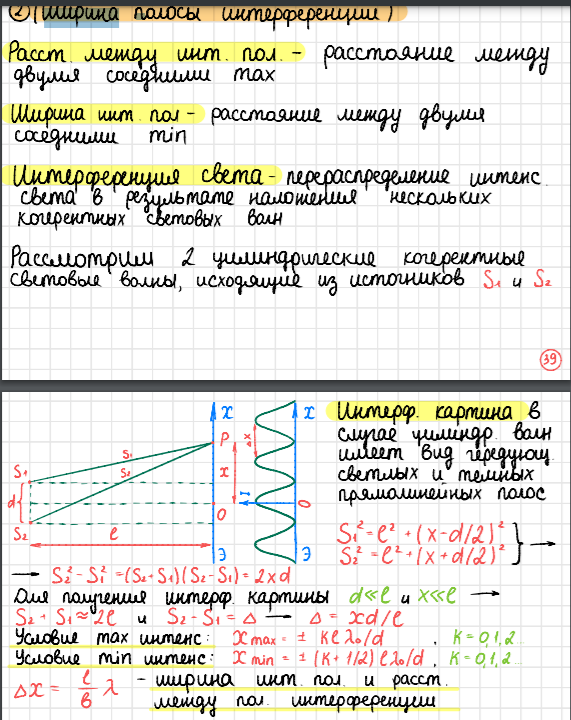 ② (Ширина полосы интерференции)
Расст. между инт. пол. - расстояние между
двумя соседними max
Ширина инт. пол - расстояние между двумя
соседними min
Интерференция света - перераспределение интенс.
света в результате наложения нескольких
когерентных световых волн
Рассмотрим 2 цилиндрические когерентные
световые волны, исходящие из источников S₁ и S₂
39
x
x
P
S₁
S₁
S₂
x
Δx
d
I
O
O
S₂
l
Э
Э
Интерф. картина в
случае цилиндр. волн
имеет вид чередующ.
светлых и темных
прямолинейных полос
S₁² = l² + (x-d/2)²
S₂² = l² + (x+d/2)² } →
→ S₂² - S₁² = (S₂+S₁)(S₂-S₁) = 2xd
Для получения интерф. картины d≪l и x≪l →
S₂ + S₁ ≈ 2l и S₂ - S₁ = Δ → Δ = xd/l
Условие max интенс: x max = ± Klλ₀/d , K = 0,1,2..
Условие min интенс: x min = ± (K+1/2) lλ₀/d , K = 0,1,2..
Δx = l/b λ - ширина инт. пол. и расст.
между пол. интерференции